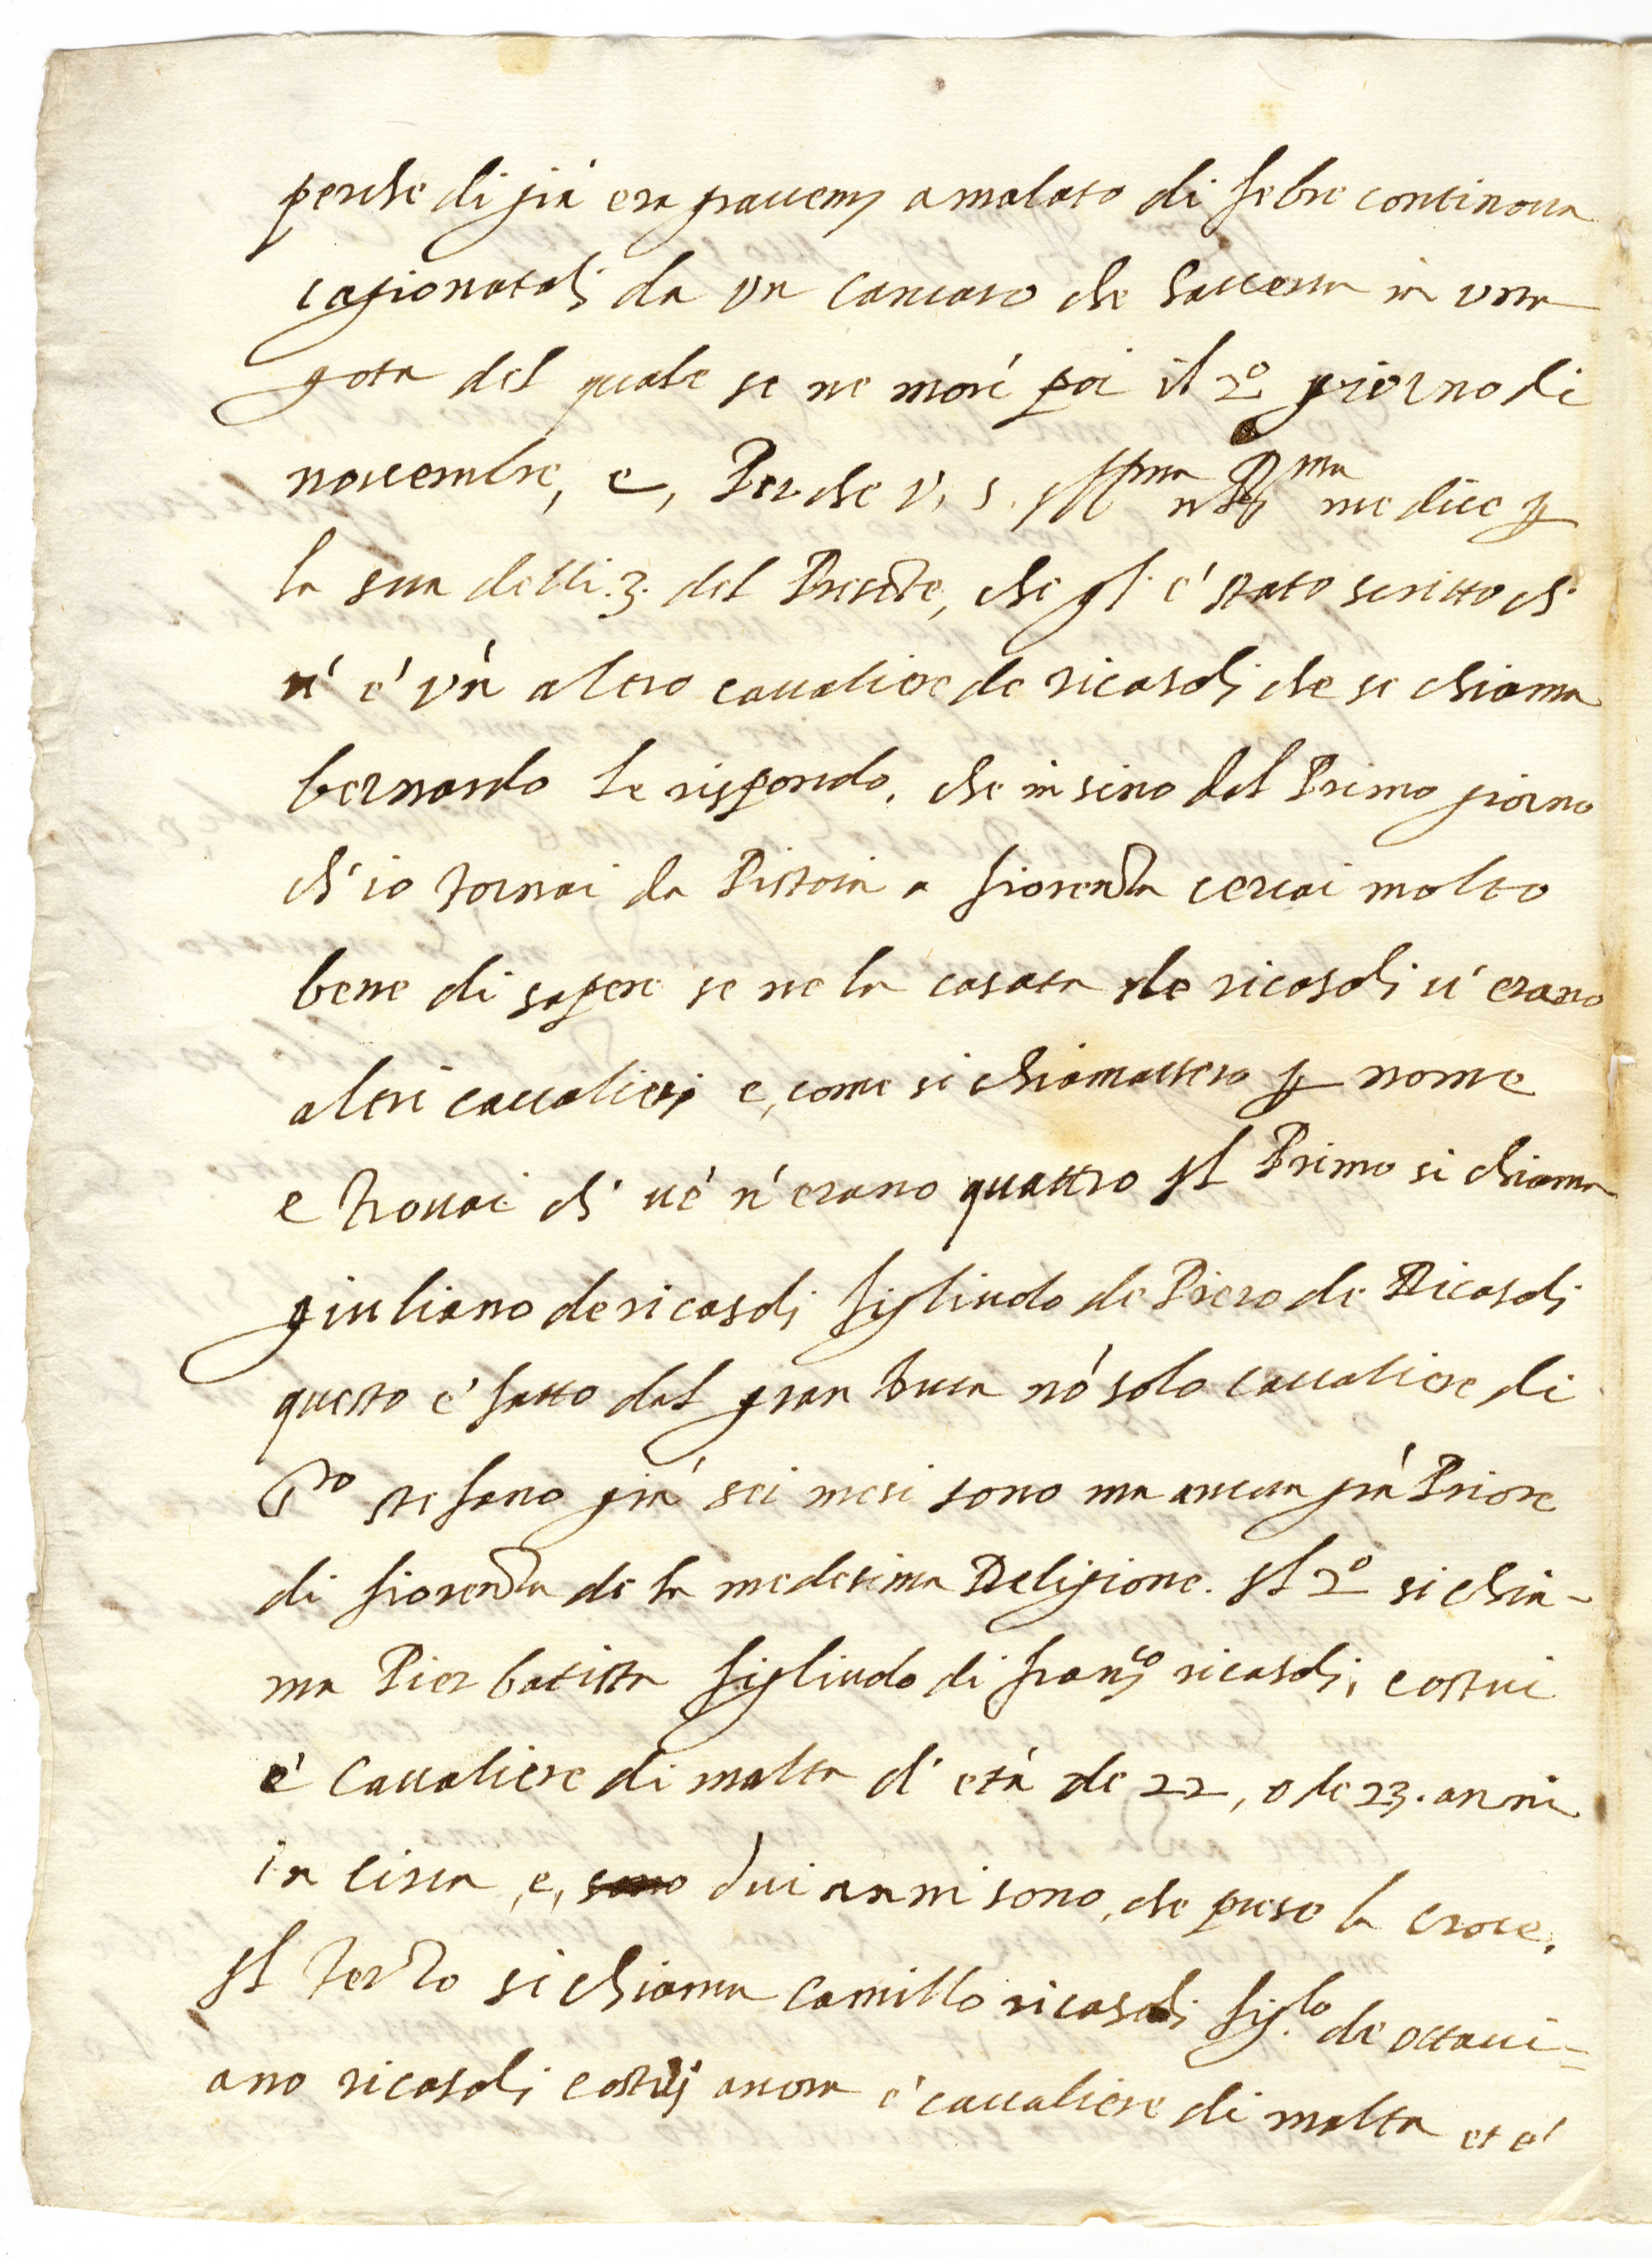 perche di già era grauem. amalato di febre continoua
cagionatali da vn cancaro che haueua in vna
gota del quale se ne morì poi il 2º giorno di
nouembre, e, Perche V. S. Ill^ma R^ma me dice p
la sua delli .3. del Presente, che gl' è stato scritto ch'
n' è vn' altro caualiere de ricasoli che se chiama
bernardo le rispondo, che in sino dal Primo giorno
ch' io tornai da Pistoia a fiorenza cercai molto
bene di sapere se ne la casata de ricasoli u' erano
altri caualieri e, come si chiamassero p nome
e trouai ch' ue n' erano quattro Il Primo si chiama
giuliano de ricasoli figliuolo de Piero de Ricasoli
questo è fatto dal gran Duca nò solo caualiere di
S^to stefano già sei mesi sono ma ancora già Priore
di fiorenza de la medesima Religione. Il 2º si chia-
ma Pier batista figliuolo di fran^co ricasoli, costui
è Caualiere di malta d' età de 22, o de 23. anni
in circa, e, sono dui anni sono, che prese la croce.
Il terzo si chiama Camillo ricasoli fig.^lo de ottaui=
ano ricasoli costui ancora è caualiere di malta et è